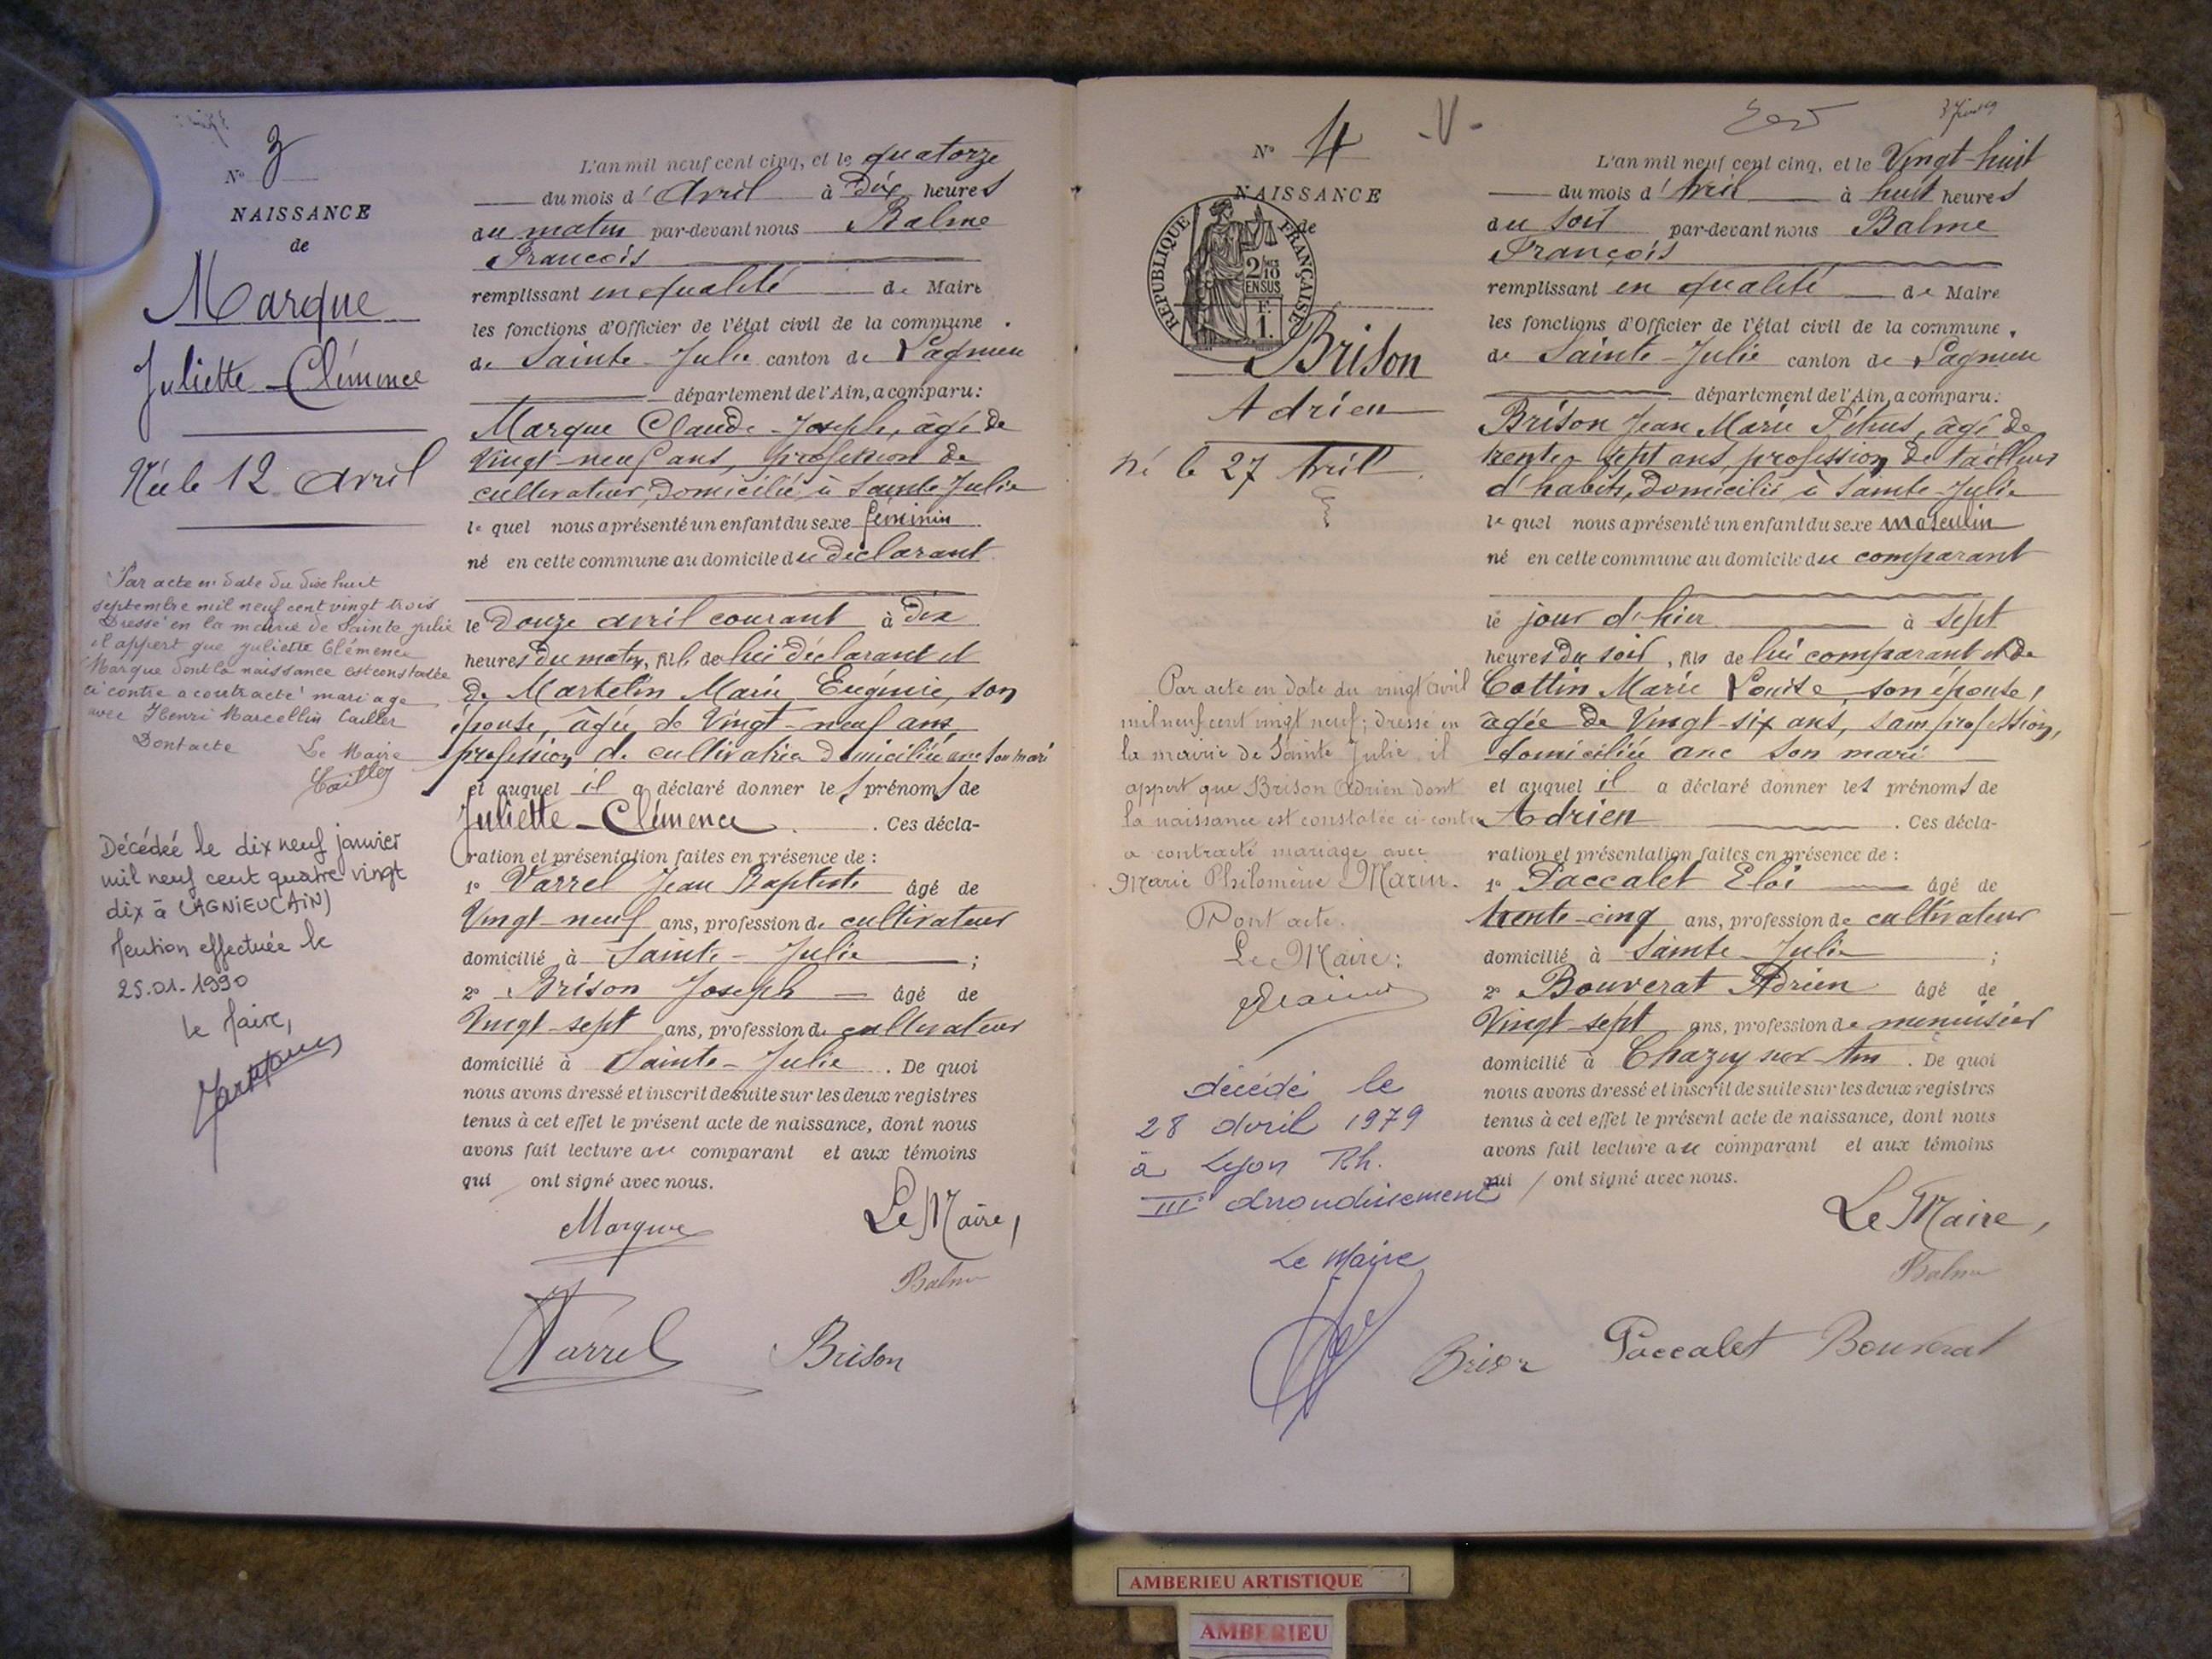 Nº 3
NAISSANCE
de
Marque
Juliette-Clémence
Née le 12 avril
Par acte en date du dix huit
septembre mil neuf cent vingt trois
Dressé en la mairie de Sainte Julie
il appert que Juliette Clémence
Marque dont la naissance est constatée
ci contre a contracté mariage
avec Henri Marcellin Cailler
Dont acte
Le Maire
Décédée le dix neuf janvier
mil neuf cent quatre vingt
dix à LAGNIEU (AIN)
Mention effectuée le
25.01.1990
le Maire,
L'an mil neuf cent cinq, et le quatorze
du mois d'Avril à dix heures
du matin par-devant nous Balme
François
remplissant en qualité de Maire
les fonctions d'Officier de l'état civil de la commune
de Sainte-Julie canton de Lagnieu
département de l'Ain, a comparu:
Marque Claude-Joseph, âgé de
Vingt-neuf ans, profession de
cultivateur, domicilié à Sainte-Julie
lequel nous a présenté un enfant du sexe féminin
né en cette commune au domicile du déclarant
le douze avril courant à dix
heures du matin, fille de lui déclarant et
de Martelin Marie Eugénie, son
épouse, âgée de Vingt-neuf ans,
profession de cultivatrice domiciliée avec son mari
et auquel il a déclaré donner les prénoms de
Juliette-Clémence. Ces décla-
ration et présentation faites en présence de :
1º Varrel Jean Baptiste âgé de
Vingt-neuf ans, profession de cultivateur
domicilié à Sainte-Julie ;
2º Brison Joseph âgé de
Vingt-sept ans, profession de cultivateur
domicilié à Sainte-Julie. De quoi
nous avons dressé et inscrit de suite sur les deux registres
tenus à cet effet le présent acte de naissance, dont nous
avons fait lecture au comparant et aux témoins
qui ont signé avec nous.
Marque Le Maire,
Balme
Varrel Brison
Nº 4 -V-
NAISSANCE
de
REPUBLIQUE FRANÇAISE
2/10 EN SUS
F. 1.
Brison
Adrien
Né le 27 Avril
Par acte en date du vingt avril
mil neuf cent vingt neuf; dressé en
la mairie de Sainte Julie, il
appert que Brison Adrien dont
la naissance est constatée ci-contre
a contracté mariage avec
Marie Philomène Marin.
Dont acte.
Le Maire:
décédé le
28 avril 1979
à Lyon Rh.
IIIe arrondissement
Le Maire
L'an mil neuf cent cinq, et le Vingt-huit
du mois d'Avril à huit heures
du soir par-devant nous Balme
François
remplissant en qualité de Maire
les fonctions d'Officier de l'état civil de la commune
de Sainte-Julie canton de Lagnieu
département de l'Ain, a comparu:
Brison Jean Marie Pétrus, âgé de
trente-sept ans, profession de tailleur
d'habits, domicilié à Sainte-Julie
lequel nous a présenté un enfant du sexe masculin
né en cette commune au domicile du comparant
le jour d'hier à sept
heures du soir, fils de lui comparant et de
Cottin Marie Louise, son épouse,
âgée de Vingt-six ans, sans profession,
domiciliée avec son mari
et auquel il a déclaré donner les prénoms de
Adrien. Ces décla-
ration et présentation faites en présence de :
1º Paccalet Eloi âgé de
trente-cinq ans, profession de cultivateur
domicilié à Sainte-Julie ;
2º Bouverat Adrien âgé de
Vingt-sept ans, profession de menuisier
domicilié à Chazey sur Ain. De quoi
nous avons dressé et inscrit de suite sur les deux registres
tenus à cet effet le présent acte de naissance, dont nous
avons fait lecture au comparant et aux témoins
qui ont signé avec nous.
Le Maire,
Balme
Brison Paccalet Bouverat
AMBERIEU ARTISTIQUE
AMBERIEU